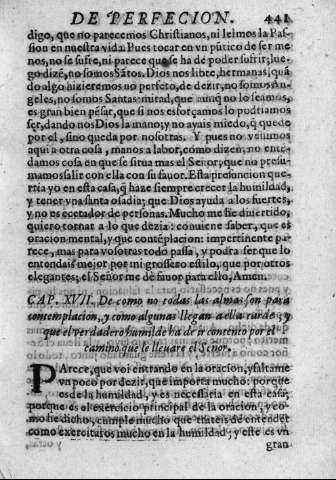 DE PERFECION. 441
digo, que no parecemos Christianos, ni leimos la Pas-
sion en nuestra vida. Pues tocar en vn pūtico de ser me
nos, no se sufre, ni parece que se ha de poder sufrir; lue-
go dizē, no somos Sātos. Dios nos libre, hermanas, quā
do algo hizieremos no perfeto, de dezir, no somos An-
geles, no somos Santas: mirad, que aunq̄ no lo seamos,
es gran bien pēsar, que si nos esforçamos lo podriamos
ser, dando nos Dios la mano; y no ayais miedo, q̄ quede
por el, sino queda por nosotras. Y pues no venimos
aqui a otra cosa, manos a labor, como dizen, no enten-
damos cosa en que se sirua mas el Señor, que no presu-
mamos salir con ella con su fauor. Esta presuncion que-
rria yo en esta casa, q̄ haze siempre crecer la humildad,
y tener vna santa osadia; que Dios ayuda a los fuertes,
y no es acetador de personas. Mucho me he diuertido,
quiero tornar a lo que dezia: conuiene saber, que es
oracion mental, y que contēplacion: impertinente pa-
rece, mas para vosotras todo passa, y podra ser que lo
entendais mejor por mi grossero estilo, que por otros
elegantes; el Señor me dè fauor para ello, Amen.
CAP. XVII. De como no todas las almas son para
contemplacion, y como algunas llegan a ella tarde; y
que el verdadero humilde ha de ir contento por el
camino que le lleuare el Señor.
PArece, que voi entrando en la oracion, y faltame
vn poco por dezir, que importa mucho: porque
es de la humildad, y es necessaria en esta casa;
porque es el exercicio principal de la oracion, y co-
mo he dicho, cumple mucho que trateis de entender
como exercitaros mucho en la humildad; y este es vn
gran